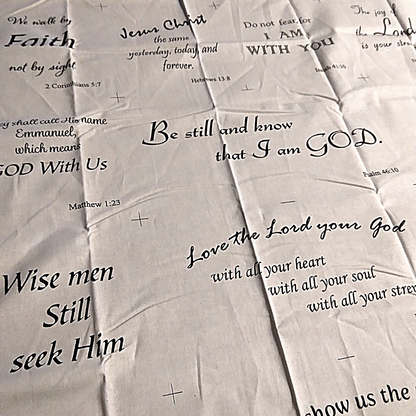 We walk by
Faith
not by sight
2 Corinthians 5:7
Jesus Christ
the same
yesterday, today and
forever.
Hebrews 13:8
Do not fear, for
I AM
WITH YOU
Isaiah 41:10
The joy of
the Lord
is your
shall call His name
Emmanuel,
which means
GOD With Us
Matthew 1:23
Be still and know
that I am GOD.
Psalm 46:10
Love the Lord your God
with all your heart
with all your soul
with all your
Wise men
Still
seek Him
show us the